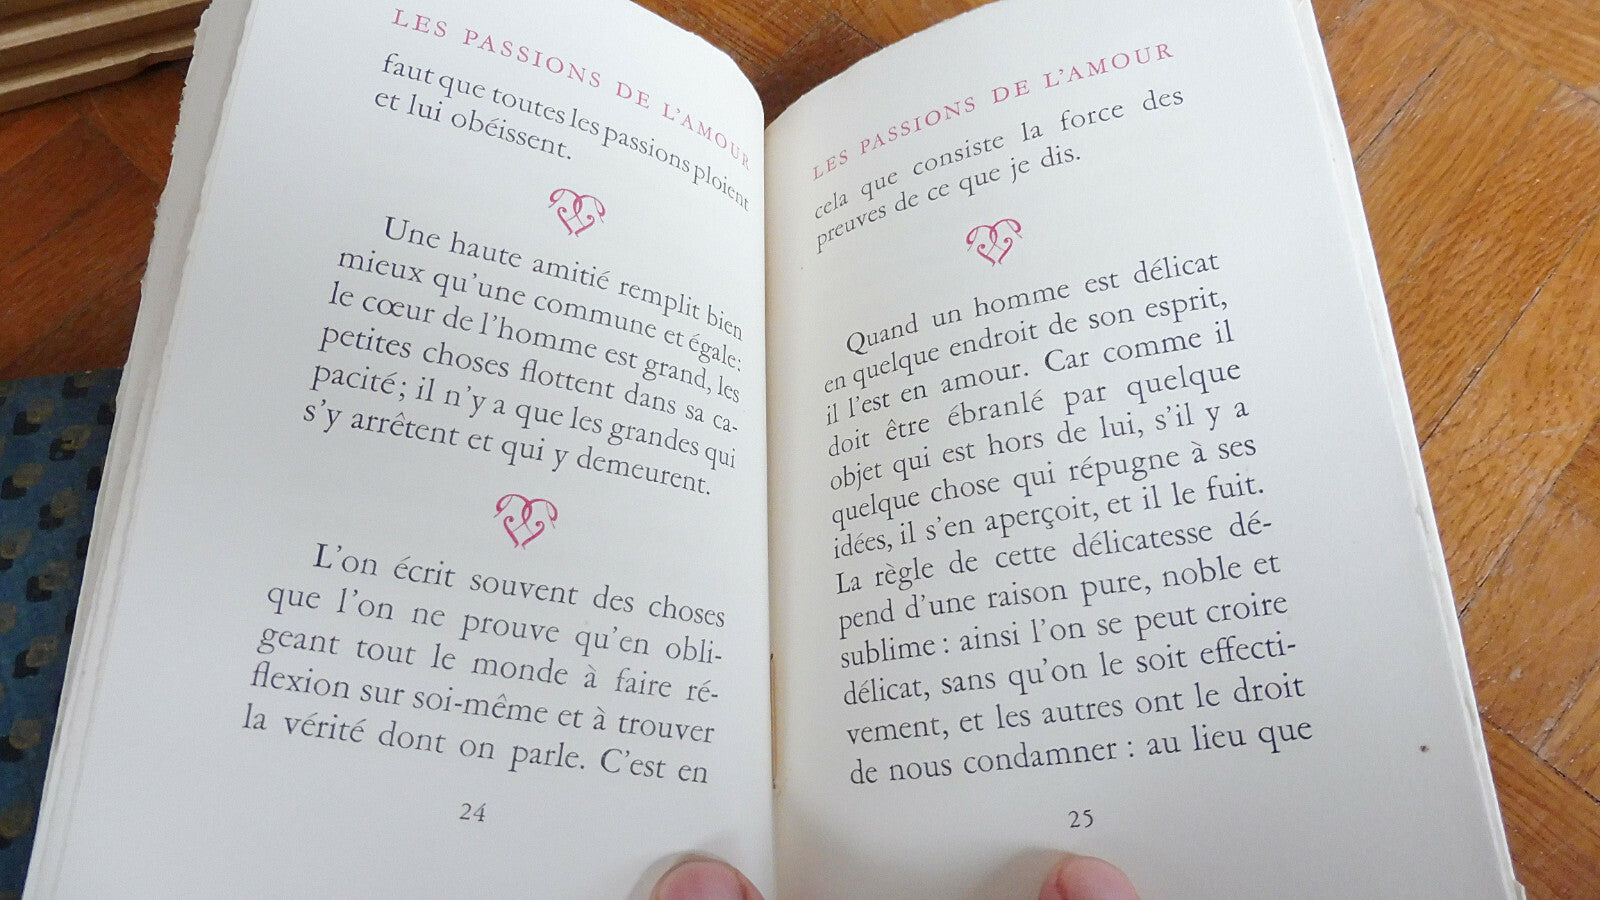 LES PASSIONS DE L'AMOUR
faut que toutes les passions ploient
et lui obéissent.
Une haute amitié remplit bien
mieux qu'une commune et égale:
le cœur de l'homme est grand, les
petites choses flottent dans sa ca-
pacité; il n'y a que les grandes qui
s'y arrêtent et qui y demeurent.
L'on écrit souvent des choses
que l'on ne prouve qu'en obli-
geant tout le monde à faire ré-
flexion sur soi-même et à trouver
la vérité dont on parle. C'est en
24
LES PASSIONS DE L'AMOUR
cela que consiste la force des
preuves de ce que je dis.
Quand un homme est délicat
en quelque endroit de son esprit,
il l'est en amour. Car comme il
doit être ébranlé par quelque
objet qui est hors de lui, s'il y a
quelque chose qui répugne à ses
idées, il s'en aperçoit, et il le fuit.
La règle de cette délicatesse dé-
pend d'une raison pure, noble et
sublime : ainsi l'on se peut croire
délicat, sans qu'on le soit effecti-
vement, et les autres ont le droit
de nous condamner : au lieu que
25